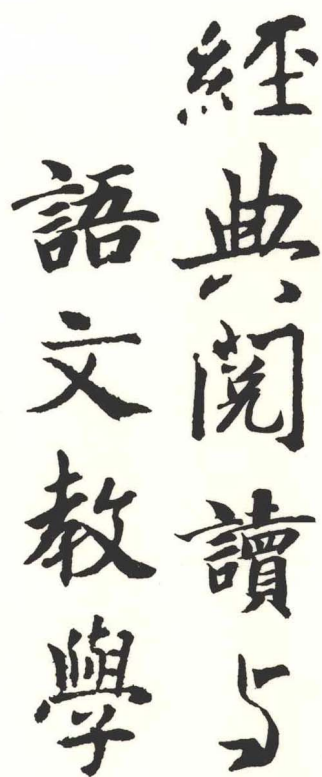 經典閱讀与
語文教學